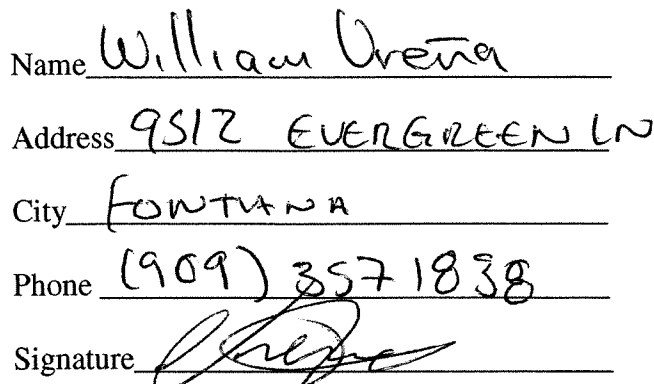 Name William Ureña
Address 9512 EVERGREEN LN
City FONTANA
Phone (909) 357 1838
Signature